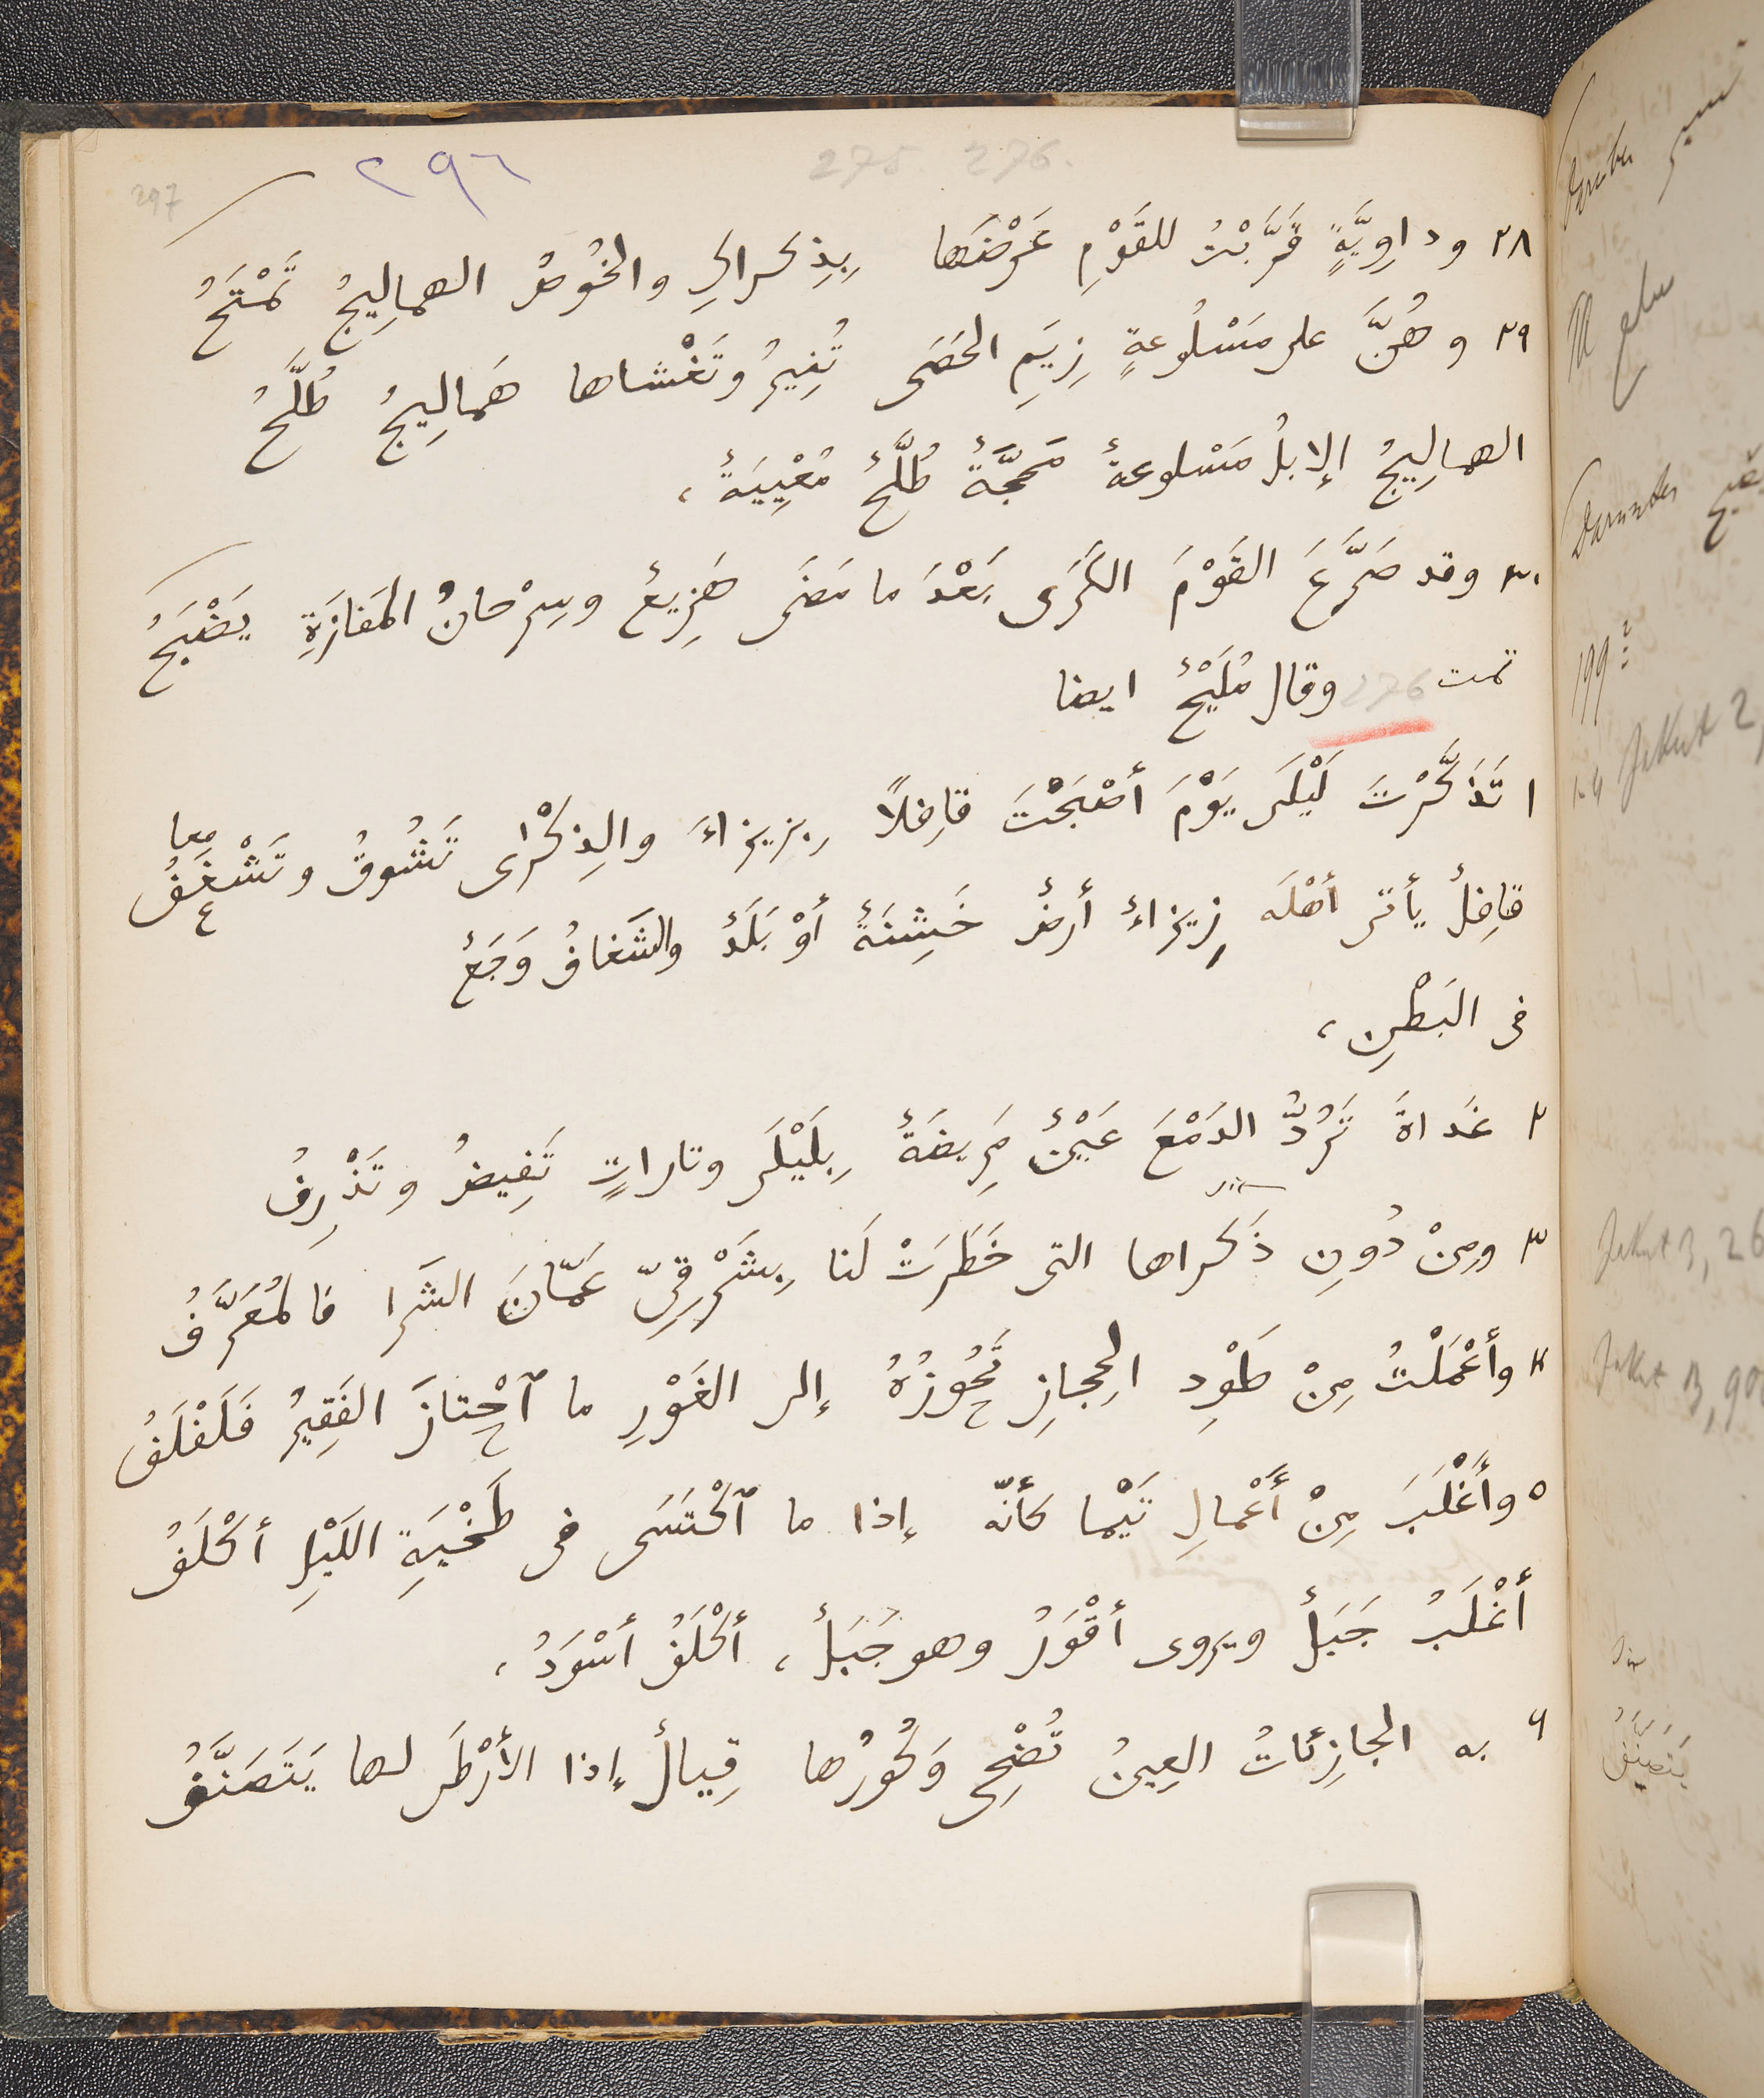 297 ٢٩٦ 275 276.
٢٨ وداوِيَّةٍ قَرَّبْتُ للقَوْمِ عَرْضَها بِذِكراكِ والخُوصُ الهمالِيجُ تَمْتَحُ
٢٩ وهُنَّ على مَسْلُوعةٍ زِيَمِ الحَصَى تُنِيرُ وتَغْشاها هَمالِيجُ طُلَّحُ
الهمالِيجُ الإبلُ مَسْلوعةٌ مَحَجَّةٌ طُلَّحٌ مُعْيِيَةٌ،
٣٠ وقد صَرَّعَ القَوْمَ الكَرَى بَعْدَ ما مَضَى هَزِيعٌ وسِرْحانُ المَفازَةِ يَضْبَحُ
تمت 276 وقال مُلَيْحٌ ايضا
١ تَذَكَّرْتَ لَيْلَى يَوْمَ أصْبَحْتَ قافِلًا بِزِيزاءَ والذِكْرَى تَشُوقُ وتَشْغَفُ معا
قافِلٌ يأتى أهْلَه زِيزاءُ أرضٌ خَشِنَةٌ أوْ بَلَدٌ والشَغافُ وَجَعٌ
فى البَطْنِ،
٢ غَداةَ تَرُدُّ الدَمْعَ عَيْنٌ مَرِيضَةٌ بِلَيْلَى وتاراتٍ تَفِيضُ وتَذْرِفُ
٣ ومِنْ دُونِ ذَكراها التى خَطَرَتْ لَنا بِشَرْقِىِّ عَمّانَ الشَرا فالمُعَرَّفُ
٤ وأعْمَلْتُ مِنْ طَوْدِ الحِجازِ تَحُوزُهُ إلى الغَوْرِ ما ٱحْتازَ الفَقِيرُ فَلَفْلَفُ
٥ وأَغْلَبَ مِنْ أَعْمالِ تَيْما كأنّه إذا ما ٱكْتَسَى فى طَخْيَةِ اللَيْلِ أكْلَفُ
أغْلَبُ جَبَلٌ ويروى أقْوَرُ وهو جَبَلٌ، أكْلَفُ أسْوَدُ،
٦ به الجازِئاتُ العِينُ تُضْحِى وَكُورُها قِيالٌ إذا الأرْطَى لها يَتَصَنَّفُ
Darunter
Darunter
199
1-4 Jakut 2,
Jakut 3, 26
Jakut 3, 90
يَتَصَيَّفُ